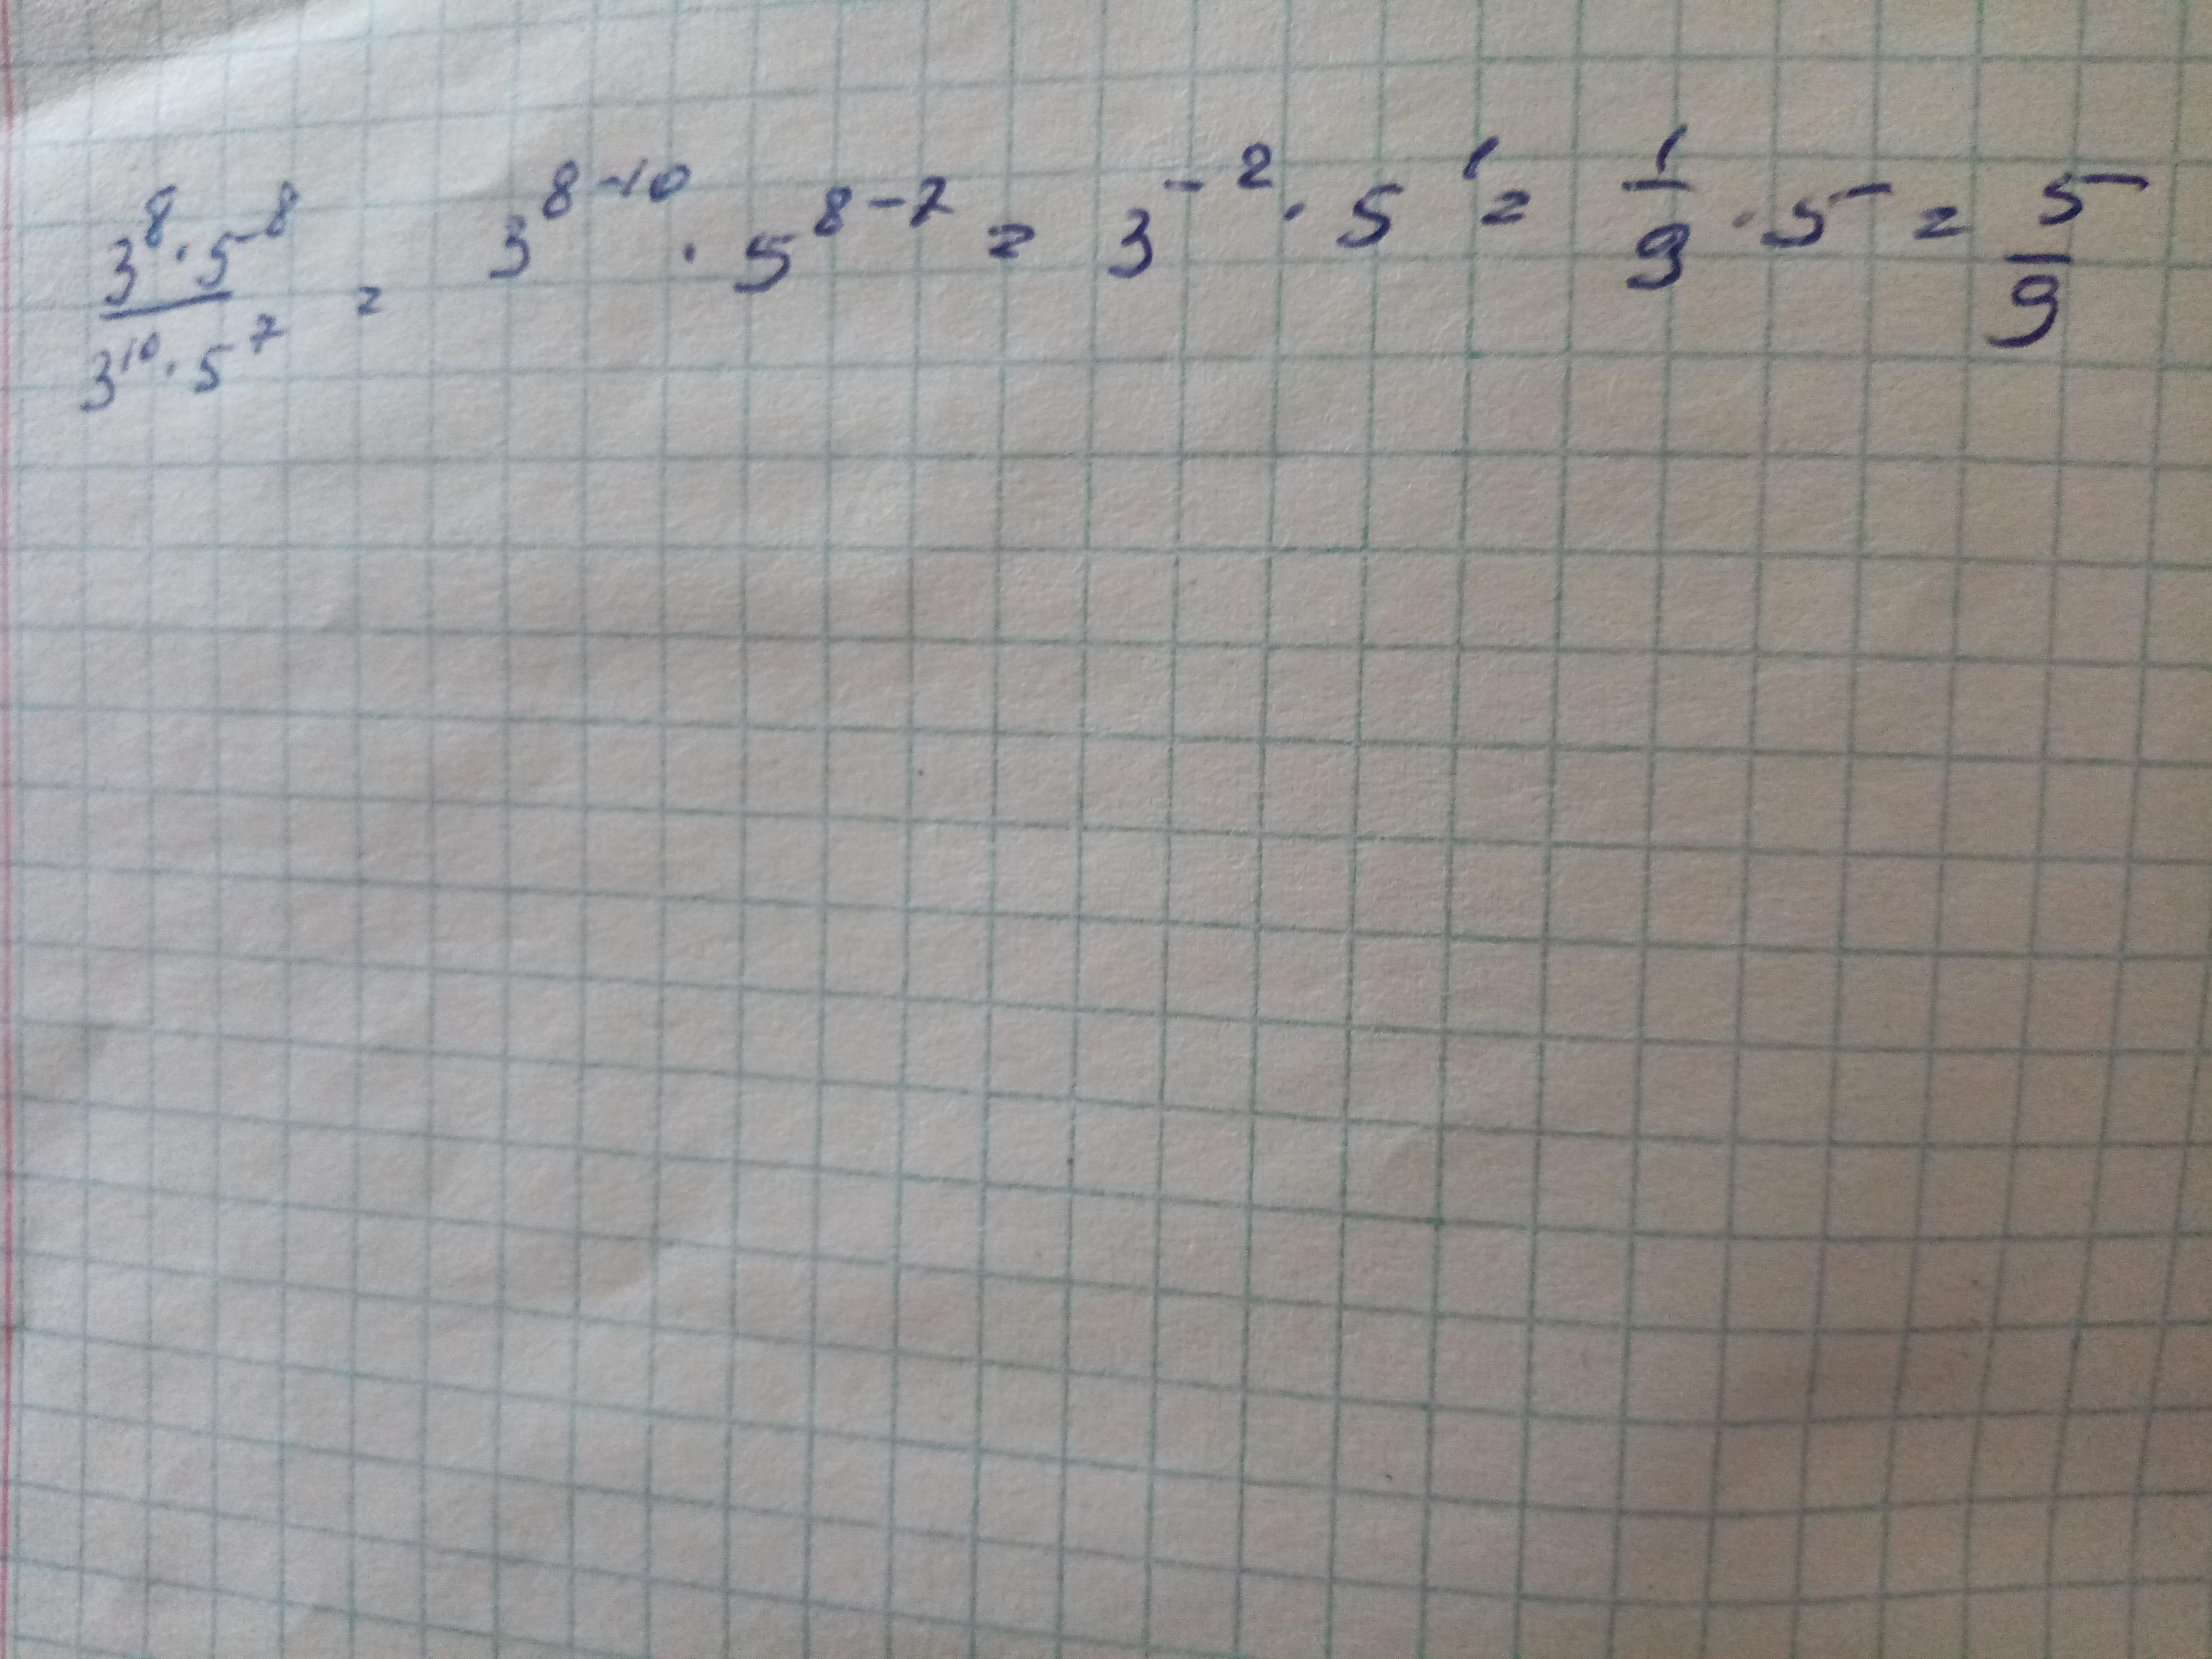 3⁸·5⁸/3¹⁰·5⁷ = 3⁸⁻¹⁰ · 5⁸⁻⁷ = 3⁻² · 5¹ = 1/9 · 5 = 5/9